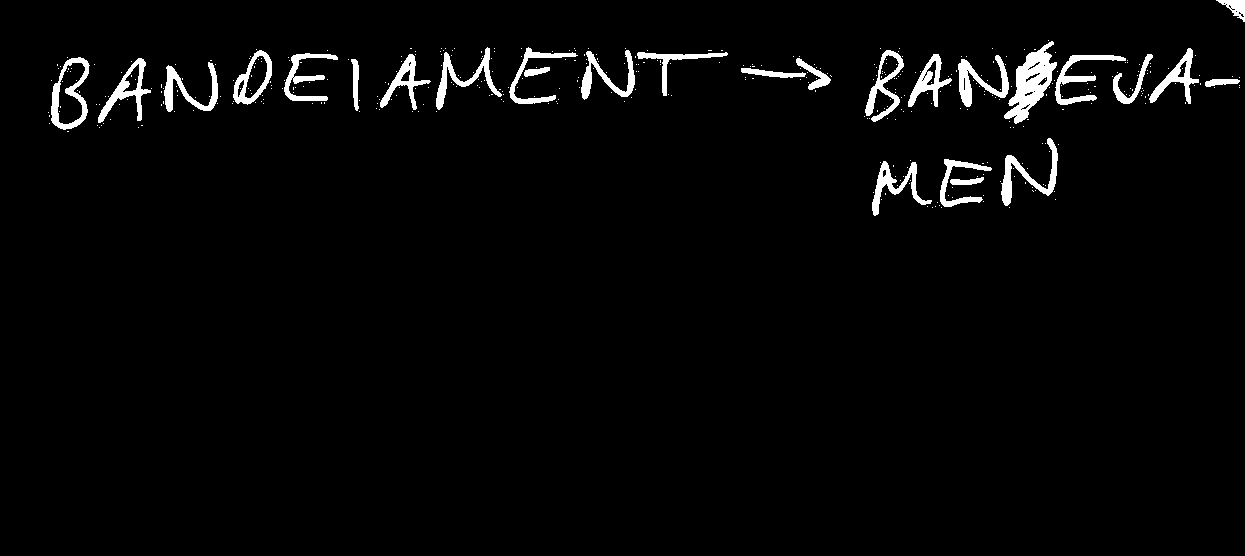 BANDEIAMENT → BANEJA-
MEN